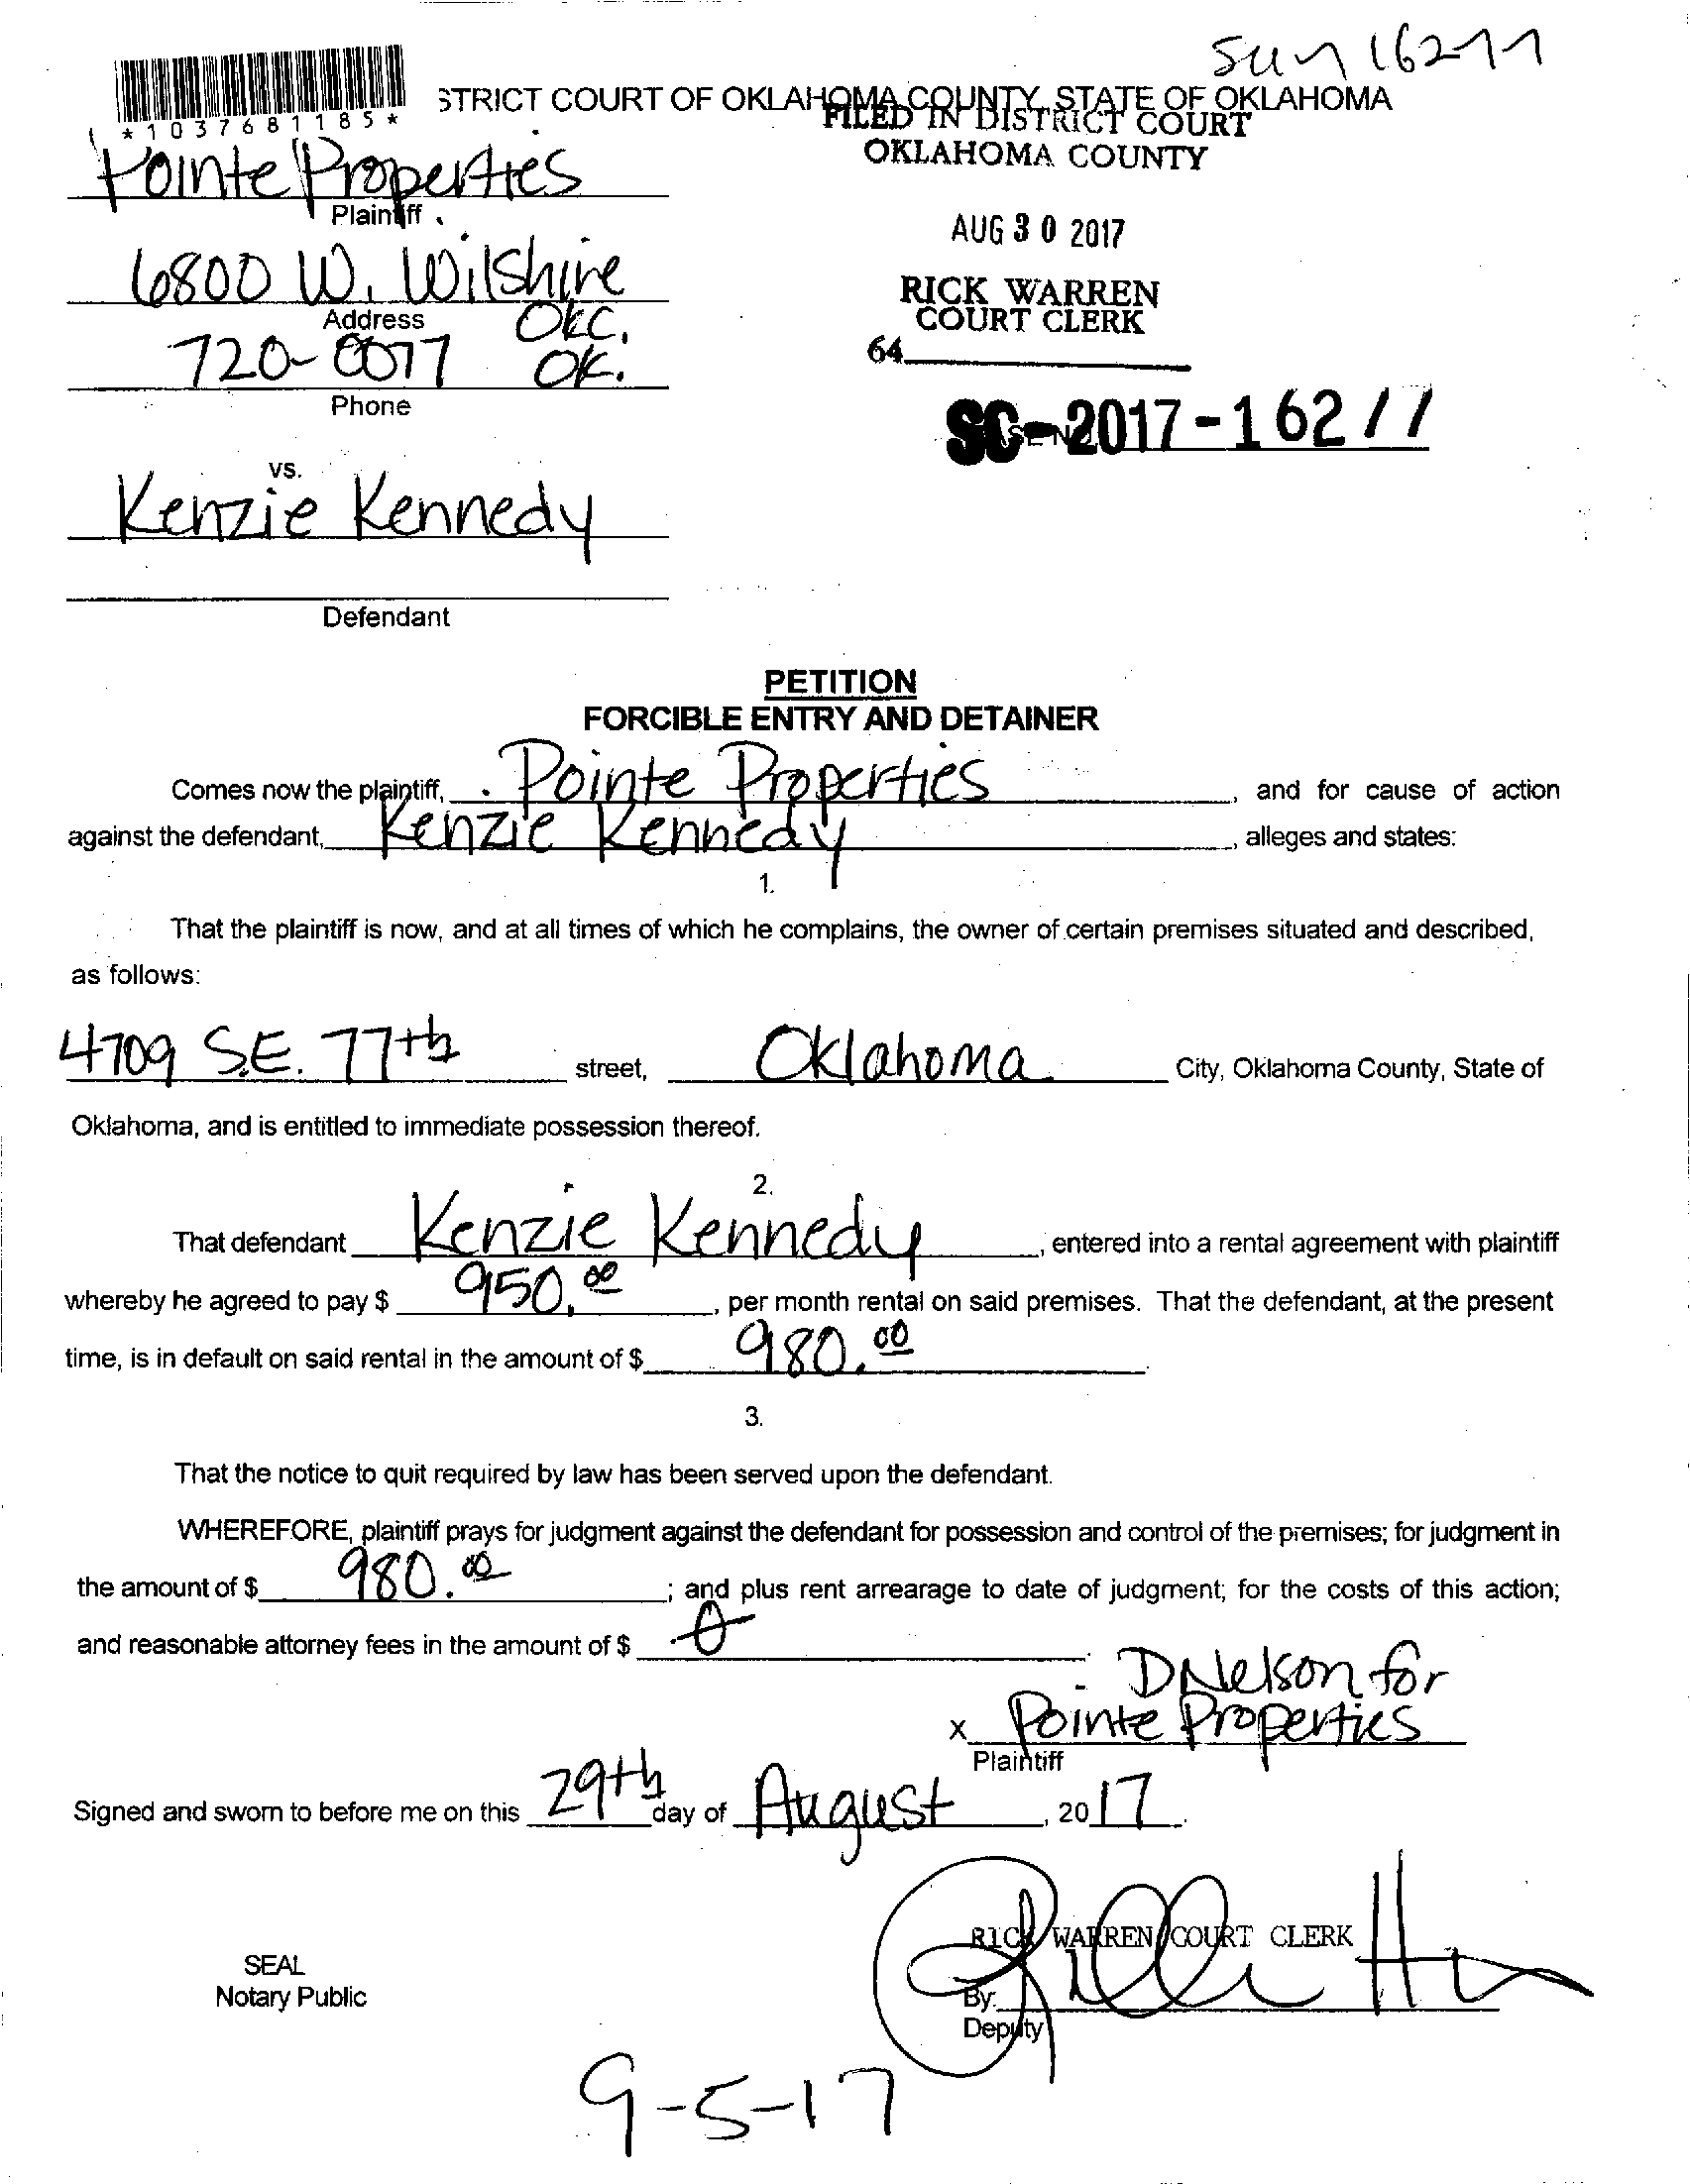 *1037681185*
STRICT COURT OF OKLAHOMA COUNTY, STATE OF OKLAHOMA
FILED IN DISTRICT COURT
OKLAHOMA COUNTY
Pointe Properties
Plaintiff
AUG 30 2017
6800 W. Wilshire
RICK WARREN
COURT CLERK
Address
OKC.
OK.
720-0077
64
Phone
SC-2017-162//
vs.
Kenzie Kennedy
Defendant
PETITION
FORCIBLE ENTRY AND DETAINER
Comes now the plaintiff, Pointe Properties, and for cause of action
against the defendant, Kenzie Kennedy, alleges and states:
1.
That the plaintiff is now, and at all times of which he complains, the owner of certain premises situated and described,
as follows:
4709 S.E. 77th street, Oklahoma City, Oklahoma County, State of
Oklahoma, and is entitled to immediate possession thereof.
2.
That defendant Kenzie Kennedy, entered into a rental agreement with plaintiff
whereby he agreed to pay $ 950.00, per month rental on said premises. That the defendant, at the present
time, is in default on said rental in the amount of $ 980.00.
3.
That the notice to quit required by law has been served upon the defendant.
WHEREFORE, plaintiff prays for judgment against the defendant for possession and control of the premises; for judgment in
the amount of $ 980.00; and plus rent arrearage to date of judgment; for the costs of this action;
and reasonable attorney fees in the amount of $ 0.
DNelson for
x Pointe Properties
Plaintiff
Signed and sworn to before me on this 29th day of August, 2017.
RICK WARREN COURT CLERK
SEAL
Notary Public
By:
Deputy
9-5-17